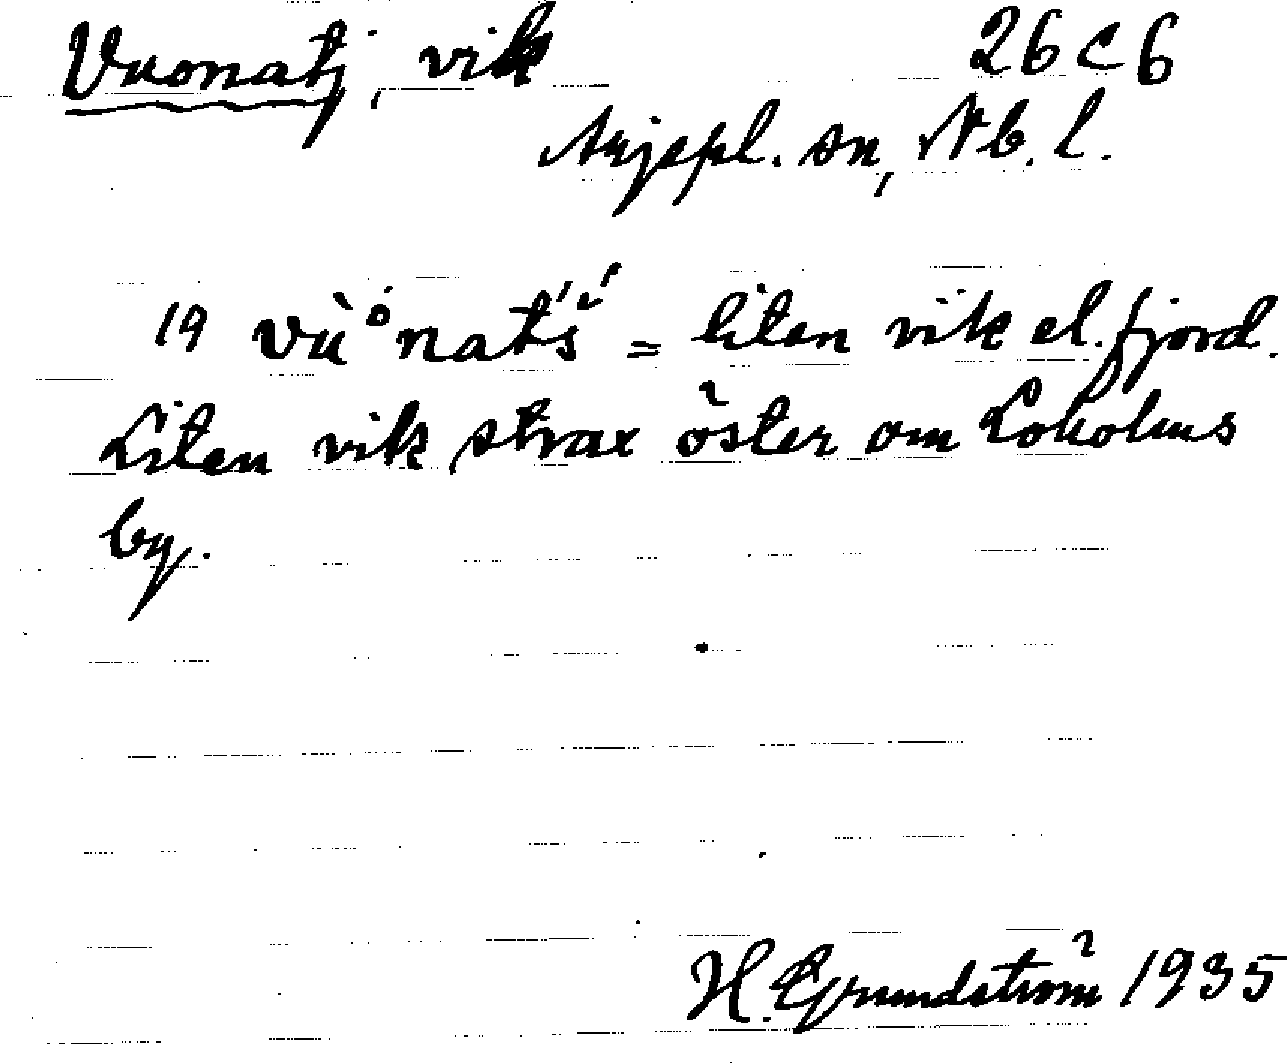 Vuonatj, vik 26 C 6
Arjepl. sn, Nb. l.
19 vùå̇natś́ = liten vik el. fjord.
Liten vik strax öster om Lokolms
by.
H. Grundström 1935